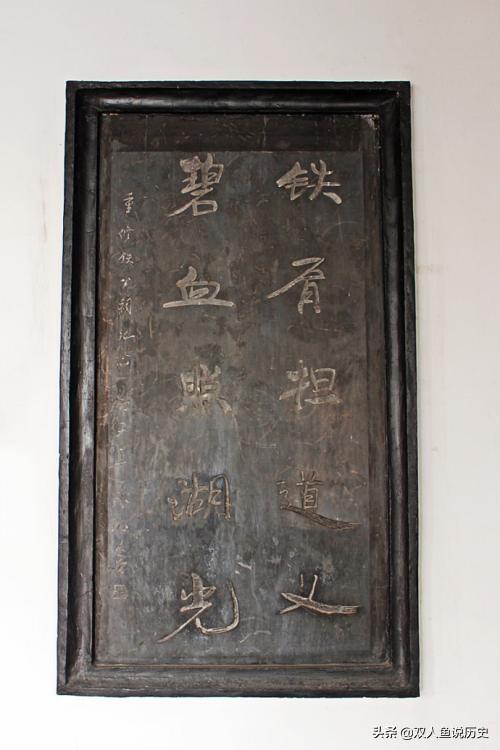 铁肩担道义
碧血照湖光
重修铁公祠
头条@双人鱼说历史